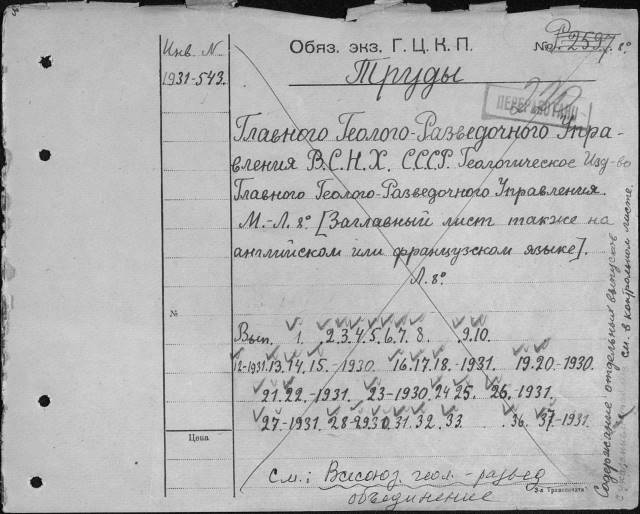 Инв. N
1931-543.
Обяз. экз. Г. Ц. К. П.
№ Р 2597 8°
Труды
ПЕРЕРАБОТАНО
Главного Геолого-Разведочного Упра-
вления В.С.Н.Х. СССР. Геологическое Изд-во
Главного Геолого-Разведочного Управления.
М.-Л. 8° [Заглавный лист также на
английском или французском языке].
Л. 8°
№
Вып. 1. 2.3.4.5.6.7.8. 9.10.
12-1931.13.14.15.-1930. 16.17.18.-1931. 19.20.-1930.
21.22.-1931. 23-1930. 24 25. 26.-1931.
27-1931. 28-29.30.31.32. 33. 36. 37-1931.
Цена
см.: Всесоюз. геол.-развед
объединение
"3-я Транспечать"
Содержание отдельных выпусков
см. в контрольном листе.